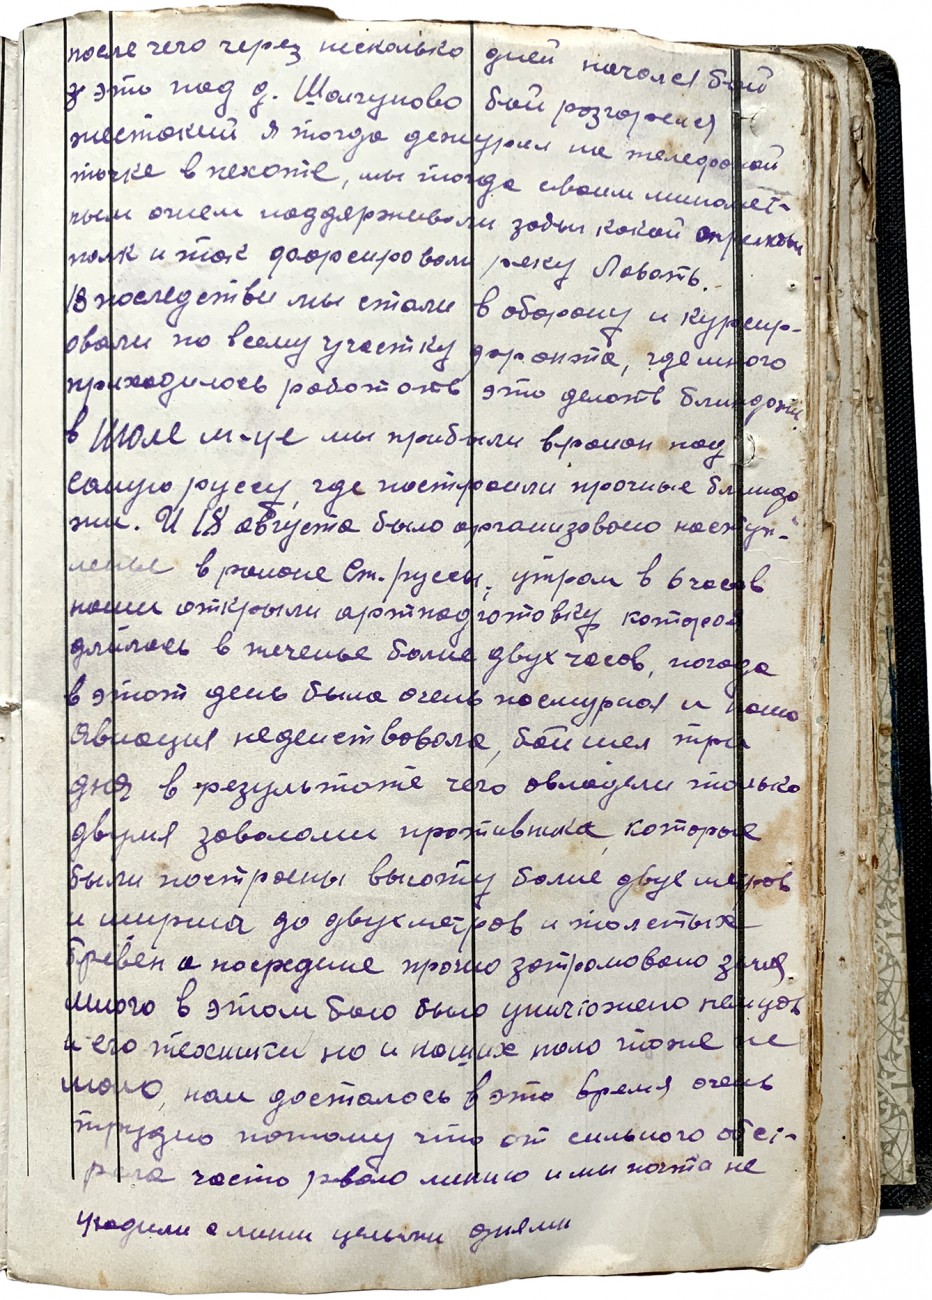 после чего через несколько дней начался бой
э это под д. Шолгуново бой розгорелся
жестокий я тогда дежурил на телефоной
точке в пехоте, мы тогда своим миномет-
ным огнем поддерживали
полк и так форсировали реку Ловать.
В последстви мы стали в оборону и курсир-
овали по всему участку фронта, где много
приходилось работать это делать блиндажи
в Июле м-це мы прибыли в район под
самую руссу, где построили прочные блинда
жи. И 18 августа было организовано наступ-
ленье в районе Ст. руссы, утром в 6 часов
наши открыли артподготовку котороя
длилась в теченье более двух часов, погода
в этот день была очень посмурная и наша
Авиация недействовала, бой шел три
дня в результате чего овладели только
двумя заволоми противника, которые
были построены высоту более двух метров
и ширина до двухметров и толстых
бревен а посредине прочно затромбовано
много в этом бою было уничтожено немцов
и его техники но и наших пало тоже не
мало, нам досталось в это время очень
трудно потому что от сильного обст-
рела часто рвало линию и мы почти не
уходили с линии целыми днями